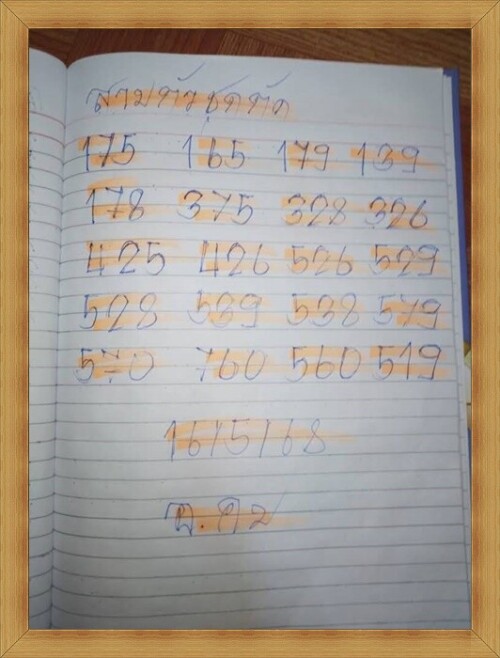 สามตัวชุดตัด
175 165 179 139
178 375 328 326
425 426 526 529
528 539 538 579
570 760 560 519
16/5/68